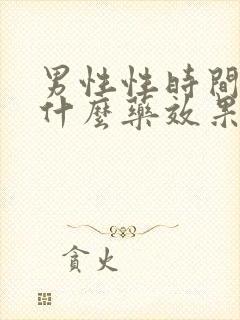 男性性時間
什麼藥效果
貪火